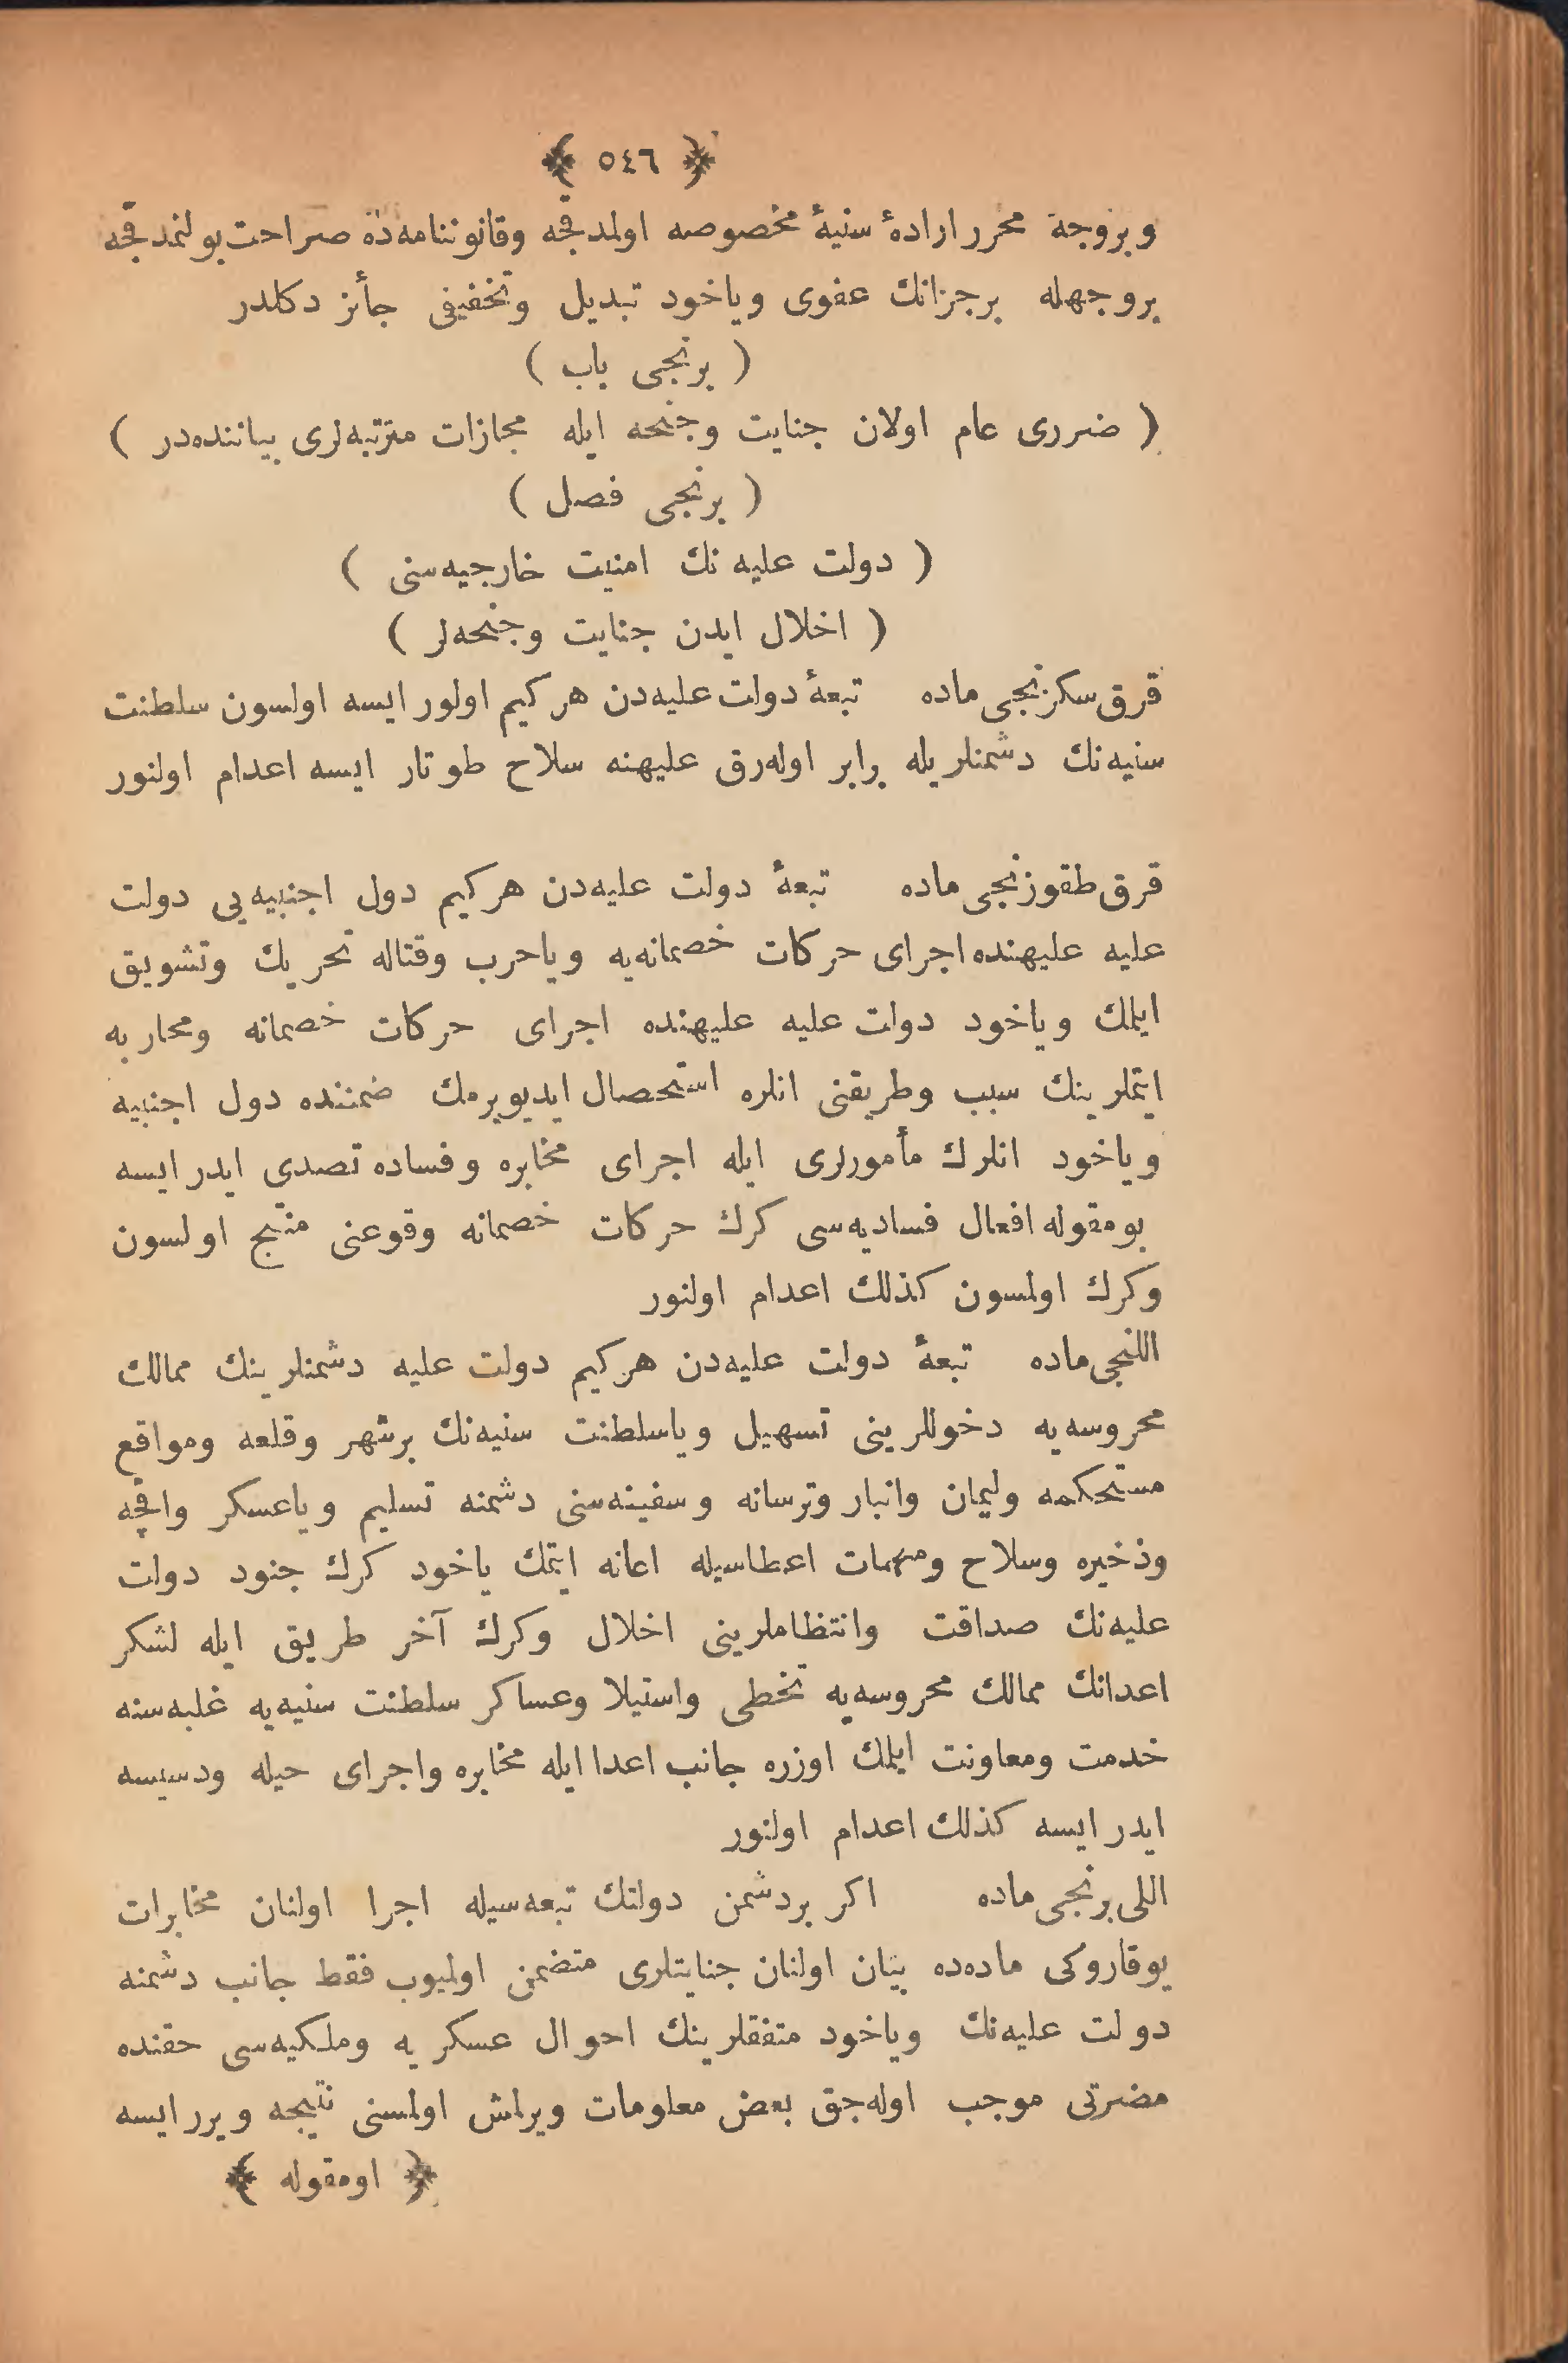 ﴿ ٥٤٦ ﴾
وبروجه محرر ارادهٔ سنیهٔ مخصوصه اولمدقجه وقانوننامه‌ده صراحت بولنمدقجه
بروجهله برجزانك عفوی ویاخود تبدیل وتخفیفی جائز دکلدر
( برنجی باب )
( ضرری عام اولان جنایت وجنحه ایله مجازات مترتبه‌لری بیاننده‌در )
( برنجی فصل )
( دولت علیه نك امنیت خارجیه‌سنی )
( اخلال ایدن جنایت وجنحه‌لر )
قرق سکزنجی ماده تبعهٔ دولت علیه‌دن هرکیم اولور ایسه اولسون سلطنت
سنیه‌نك دشمنلریله برابر اوله‌رق علیهنه سلاح طوتار ایسه اعدام اولنور
قرق طقوزنجی ماده تبعهٔ دولت علیه‌دن هرکیم دول اجنبیه‌یی دولت
علیه علیهنده اجرای حرکات خصمانه‌یه ویاحرب وقتاله تحریك وتشویق
ایلمك ویاخود دولت علیه علیهنده اجرای حرکات خصمانه ومحاربه
ایتملرینك سبب وطریقنی انلره استحصال ایدیویرمك ضمننده دول اجنبیه
ویاخود انلرك مأمورلری ایله اجرای مخابره وفساده تصدی ایدر ایسه
بومقوله افعال فسادیه‌سی کرك حرکات خصمانه وقوعنی منتج اولسون
وکرك اولمسون کذلك اعدام اولنور
اللنجی ماده تبعهٔ دولت علیه‌دن هرکیم دولت علیه دشمنلرینك ممالك
محروسه‌یه دخوللرینی تسهیل ویاسلطنت سنیه‌نك برشهر وقلعه ومواقع
مستحکمه ولیمان وانبار وترسانه وسفینه‌سنی دشمنه تسلیم ویاعسکر واقچه
وذخیره وسلاح ومهمات اعطاسیله اعانه ایتمك یاخود کرك جنود دولت
علیه‌نك صداقت وانتظاملرینی اخلال وکرك آخر طریق ایله لشکر
اعدانك ممالك محروسه‌یه تخطی واستیلا وعساکر سلطنت سنیه‌یه غلبه‌سنه
خدمت ومعاونت ایلمك اوزره جانب اعدا ایله مخابره واجرای حیله ودسیسه
ایدر ایسه کذلك اعدام اولنور
اللی برنجی ماده اکر بردشمن دولتك تبعه‌سیله اجرا اولنان مخابرات
یوقاروکی ماده‌ده بیان اولنان جنایتلری متضمن اولمیوب فقط جانب دشمنه
دولت علیه‌نك ویاخود متفقلرینك احوال عسکریه وملکیه‌سی حقنده
مضرتی موجب اوله‌جق بعض معلومات ویرلمش اولمسنی نتیجه ویرر ایسه
﴿ اومقوله ﴾